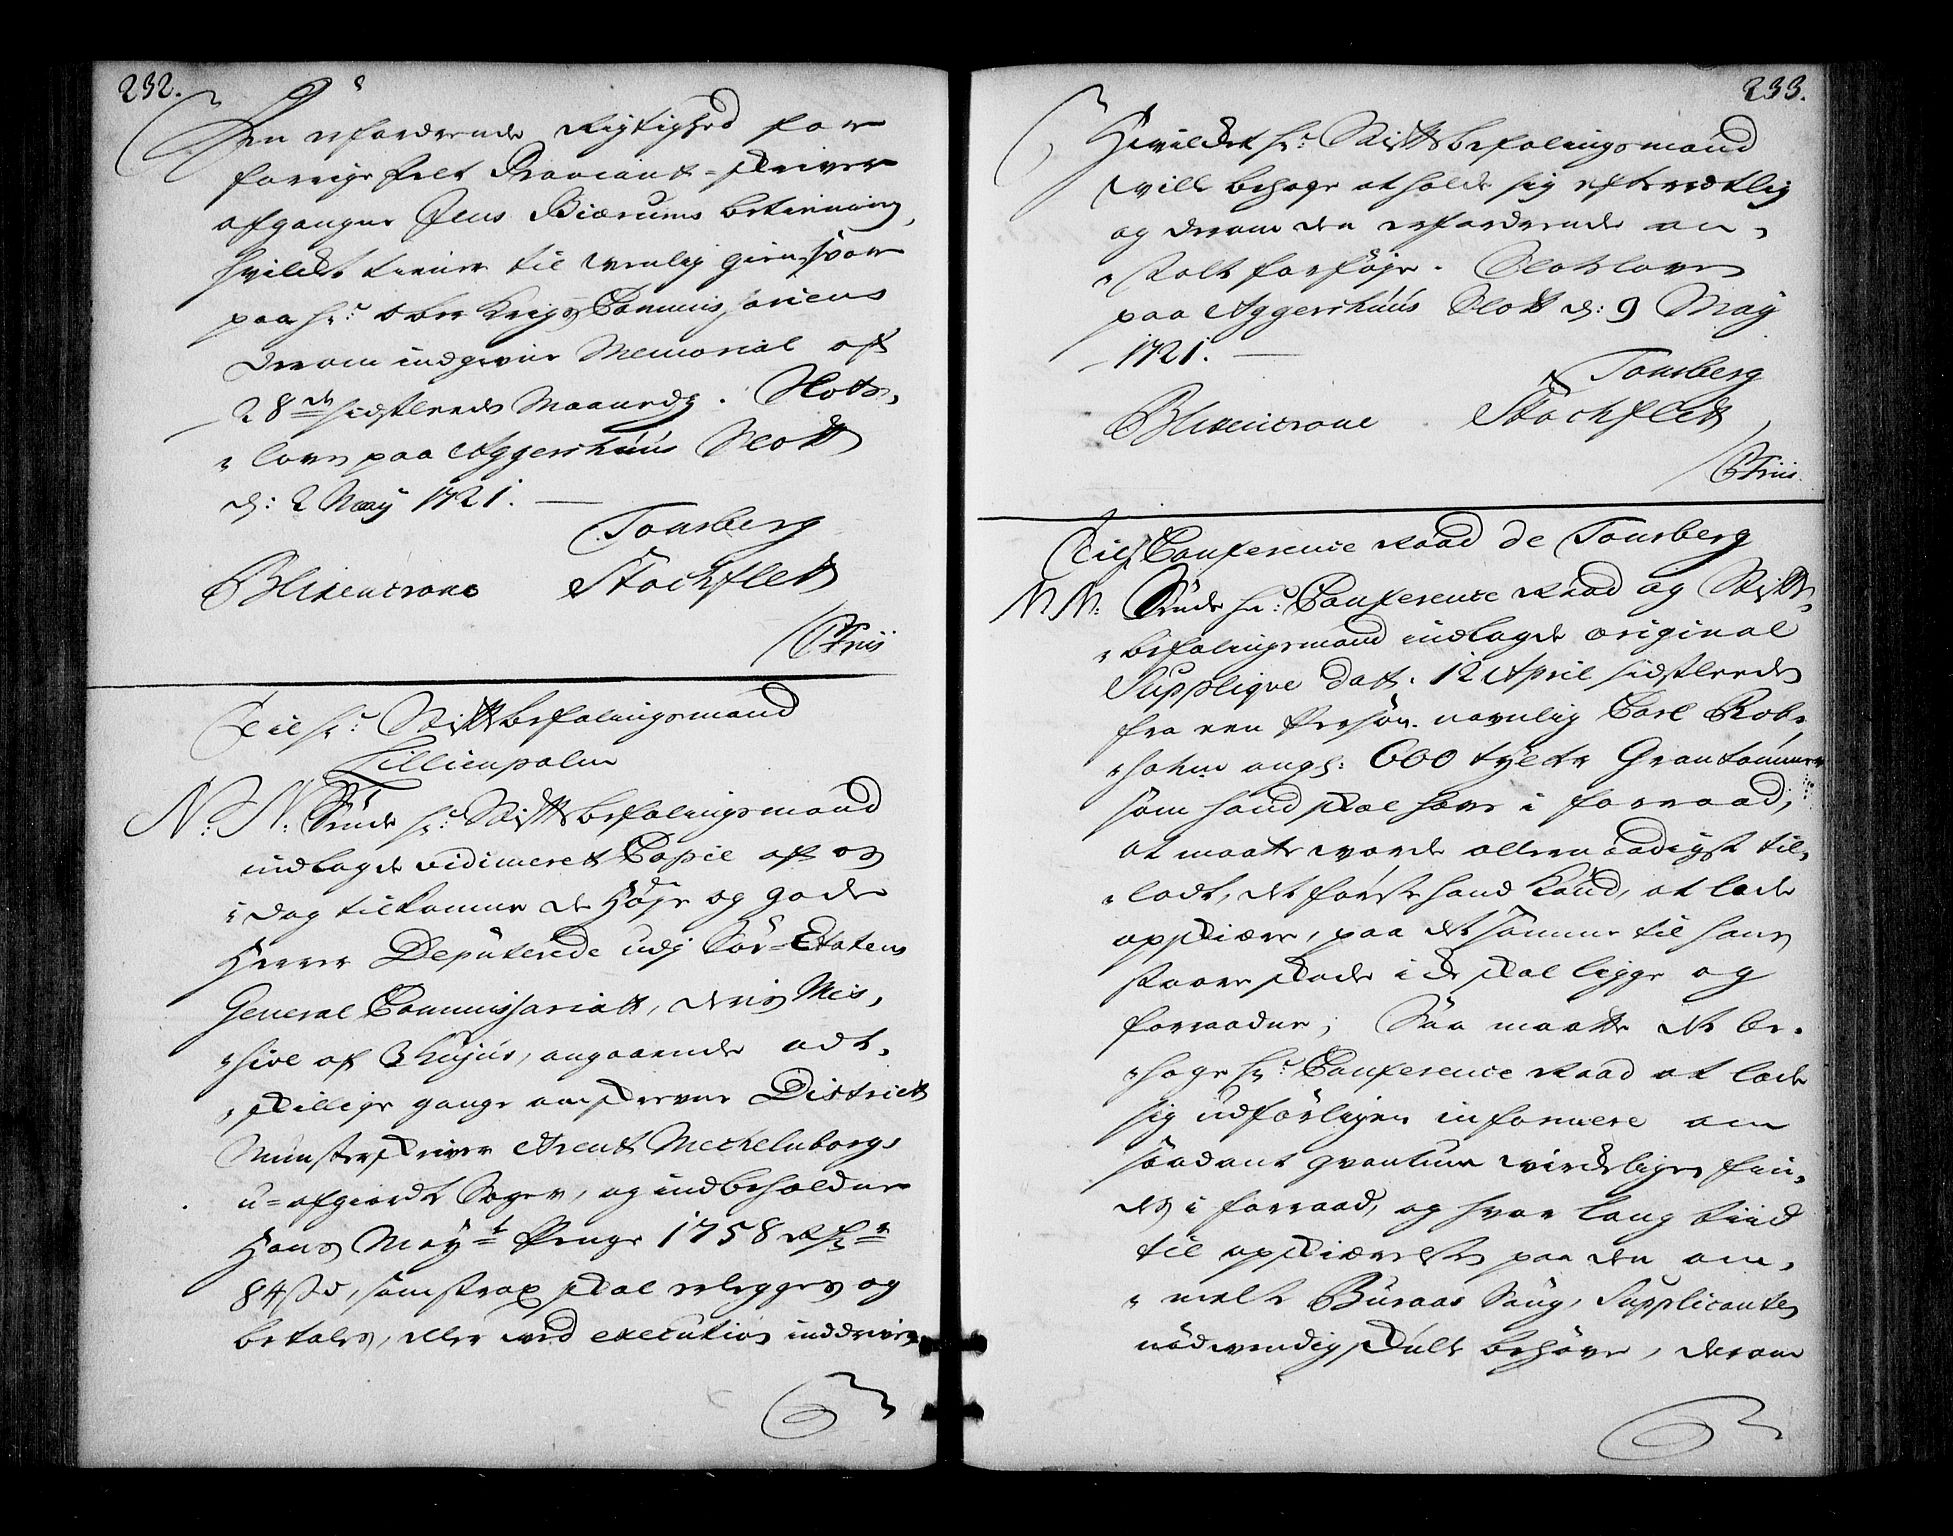 232.
den udfordrende Rigtighed for
forrige felt Proviant-skriver
afgangne Jens Biærums betienning,
hvilket tiener til venlig giensvar
paa hr: ober Krigs Commissariens
derom indgivne Memorial af
28de sidstleede Maaneds. Slots-
"lovs paa Aggershuus Slott
d: 2 May 1721.
Tonsberg
Blixencrone Stochflett
/CFriis
Til hr: Stiftsbefalingsmand
Lillienpalm
N: N: Sende hr: Stiftsbefalingsmand
indlagde vidimerett Copie af os
i dag tilkomne de Høje og gode
Herrer Deputerede udj Søe-Etatens
General Commissariatt, deris Mis-
"sive af 3 hujus, angaaende adt-
"skillige gange omskrevne District
Munsterskriver Arent Mechelnborgs
u-afgiordte Sager, og indbeholdne
Hans Mayts Penge 1758 Rdr
84 s, som strax skal erlegges og
betales, eller ved execution inddrives
233.
Hvilket hr: Stiftsbefalingsmand
ville behage at holde sig efterretlig
og derom den udfordrende an-
"stalt forføje. Slotsloven
paa Aggershuus Slott d: 9 May
1721.
Tonsberg
Blixencrone Stochflett
/CFriis
Til Conference Raad de Tonsberg
N N: Sende hr: Conference Raad og Stifts-
"befalingsmand indlagde original
Supplique datt. 12 April sidstleede
fra een Person navnlig Carl Rob-
"sahm ang: 600 tylter Grantømmer
som hand skal have i forraad,
at maatte vorde allernaadigst til-
"ladt, det første hand Kand, at lade
opskiære, paa det samme til hans
store skade i de skal ligge og
forraadne; Saa maatte det be-
"hage hr: Conference Raad at lade
sig udførligen informere om
saadant qvantum virkeligen fin-
des i forraad, og hvor lang tiid
til opskiærelse paa den om-
"melte Buraas Saug, Supplicanten
nødvendig skulle behøve, derom